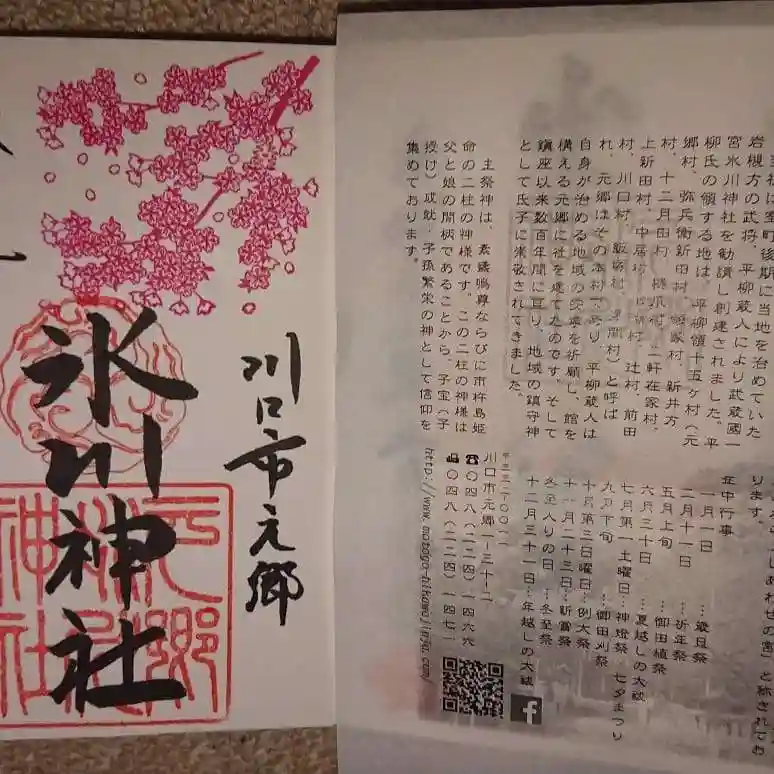 川口市元郷
氷川神社
元郷氷川神社
当社は室町後期に当地を治めていた
岩槻方の武将、平柳蔵人により武蔵國一
宮氷川神社を勧請し創建されました。平
柳氏の領する地は、平柳領十五ヶ村（元
郷村、弥兵衛新田村、領家村、新井方
村、十二月田村、樋爪村、二軒在家村、
上新田村、中居村、
村、川口村、飯塚村、
れ、元郷はその本村であり、平柳蔵人は
自身が治める地域の安寧を祈願し、館を
構える元郷に社を建てたのです。そして
鎮座以来数百年間に亘り、地域の鎮守神
として氏子に崇敬されてきました。
主祭神は、素盞嗚尊ならびに市杵島姫
命の二柱の神様です。この二柱の神様は
父と娘の間柄であることから、子宝（子
授け）成就・子孫繁栄の神として信仰を
集めております。
しあわせの宮」と称されてお
ります。
年中行事
一月一日…歳旦祭
二月十一日…祈年祭
五月上旬…御田植祭
六月三十日…夏越しの大祓
七月第一土曜日…神燈祭 七夕まつり
九月下旬…御田刈祭
十月第三日曜日…例大祭
十一月二十三日…新嘗祭
冬至入りの日…冬至祭
十二月三十一日…年越しの大祓
〒三三二-〇〇一一
川口市元郷一-三十-二
☎〇四八（二二四）一四六六
〇四八（二二四）一四七一
http://www.motogo-hikawajinja.com/
f